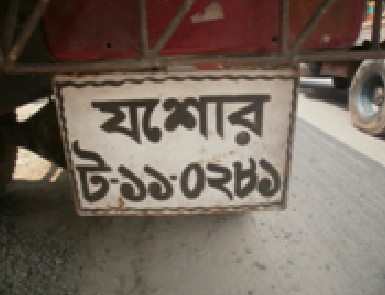 যশোর
ট-১১-০২৮১